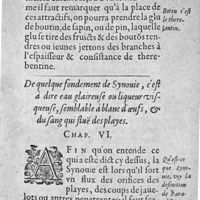 il faut remarquer qu'à la place de
ces attractifs, on pourra prendre la glu
de boutin, de sapin, ou de pin, laquelle
glu se tire des fruits & des boutõs ten-
dres ou ieunes jettons des branches à
l'espaisseur & consistance de there-
bentine.
Botin c'est
le there-
bentin.
De quelque fondement de Synouie, c'est
à dire eau plaireuse ou liqueur vis-
queuse, semblable à blanc d'œufs, &
du sang qui flue des playes.
CHAP. VI.
AFIN qu'on entende ce
qui a esté dict cy dessus, la
Synouie est lors qu'il sort
un flux des orifices des
playes, des coups de jaue-
lots ou autres
Qu'est-ce
que Syno-
uie, voy la
definition
de Para-